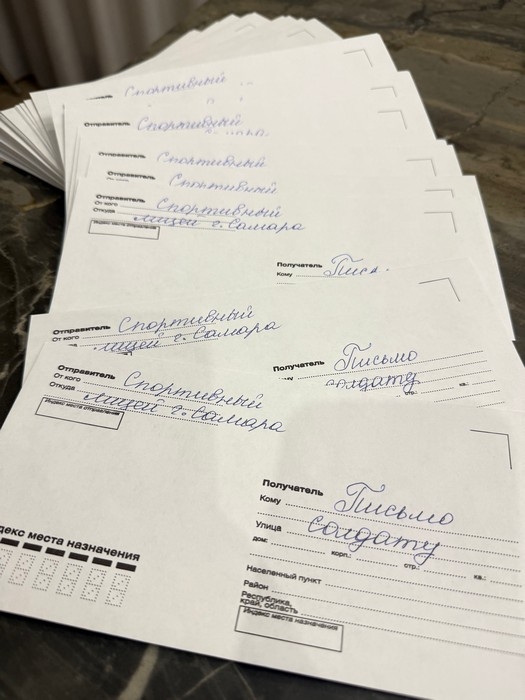 Спортивный
Отправитель Спортивный
Отправитель Спортивный
Отправитель Спортивный
Отправитель Спортивный
От кого
Откуда лицей г. Самара
Индекс места отправления
Получатель
Кому
Отправитель Спортивный
От кого лицей г. Самара
Получатель Письмо
солдату
стр.: кв.:
Отправитель Спортивный
От кого
Откуда лицей г. Самара
Индекс места отправления
Получатель
Кому Письмо
Улица солдату
дом: корп.: стр.: кв.:
Населенный пункт
Район
Республика,
край, область
Индекс места назначения
декс места назначения